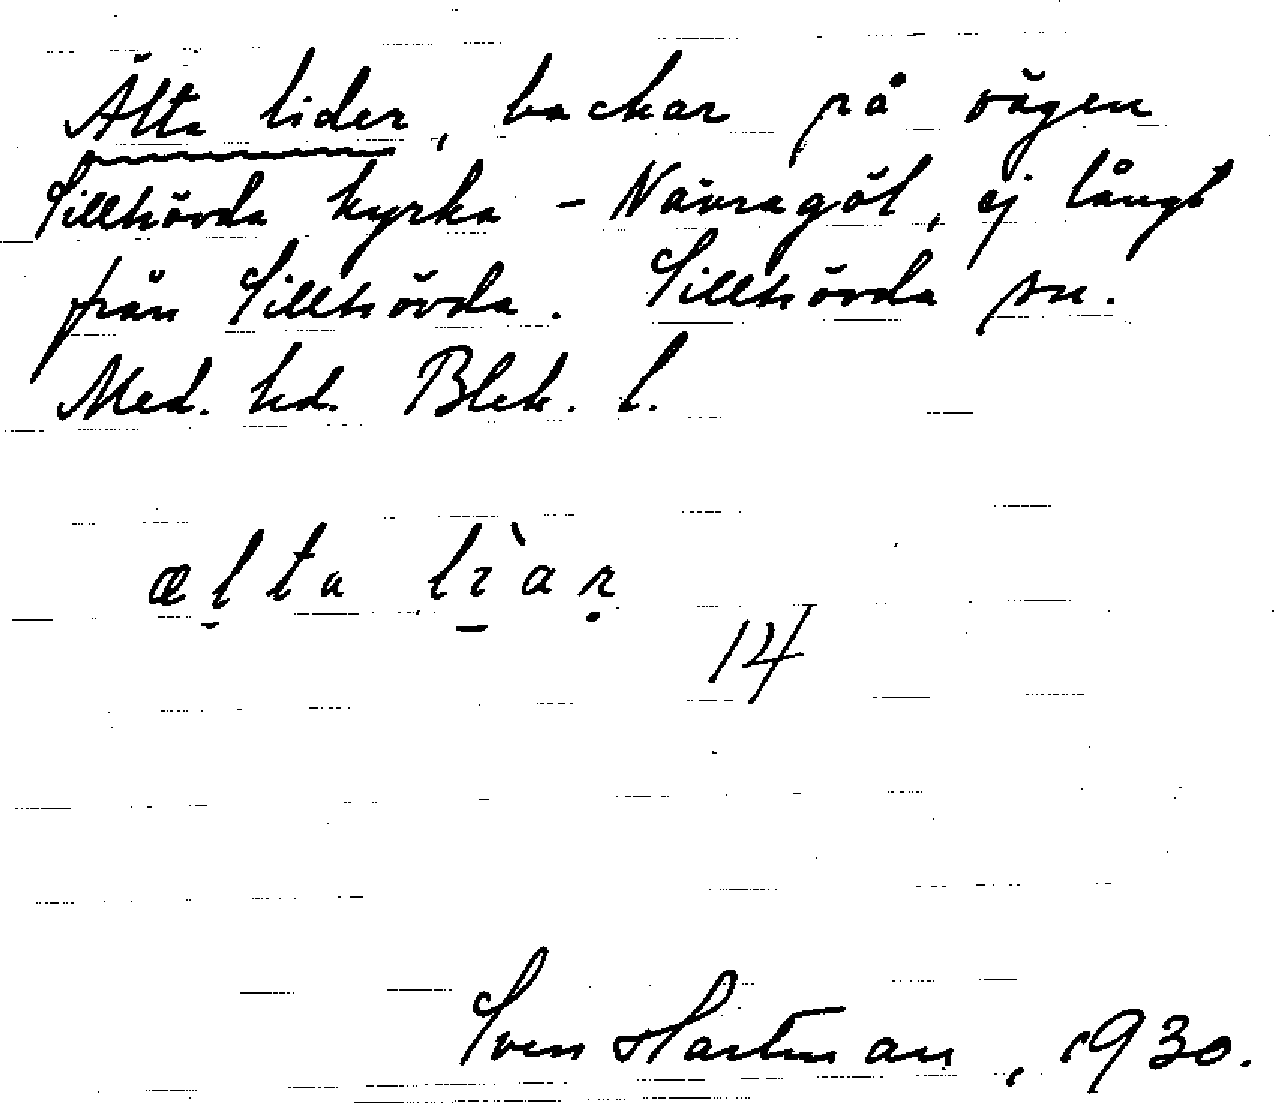 Älta lider, backar på vägen
Sillhövda kyrka - Nävragöl, ej långt
från Sillhövda. Sillhövda sn.
Med. hd. Blek. l.
ælta lìar
14
Sven Hartman, 1930.